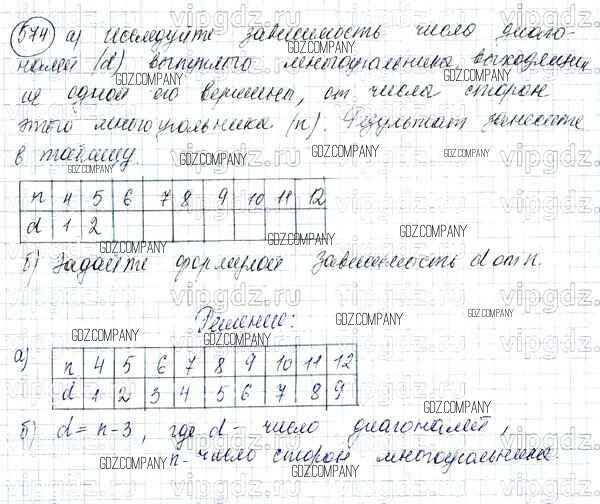 574 а) исследуйте зависимость число диаго-
налей (d) выпуклого многоугольника выходящих
из одной его вершины, от числа сторон
этого многоугольника (n). Результат занесите
в таблицу.
n 4 5 6 7 8 9 10 11 12
d 1 2
б) Задайте формулой зависимость d от n.
Решение:
а) n 4 5 6 7 8 9 10 11 12
d 1 2 3 4 5 6 7 8 9
б) d = n-3, где d - число диагоналей,
n - число сторон многоугольника